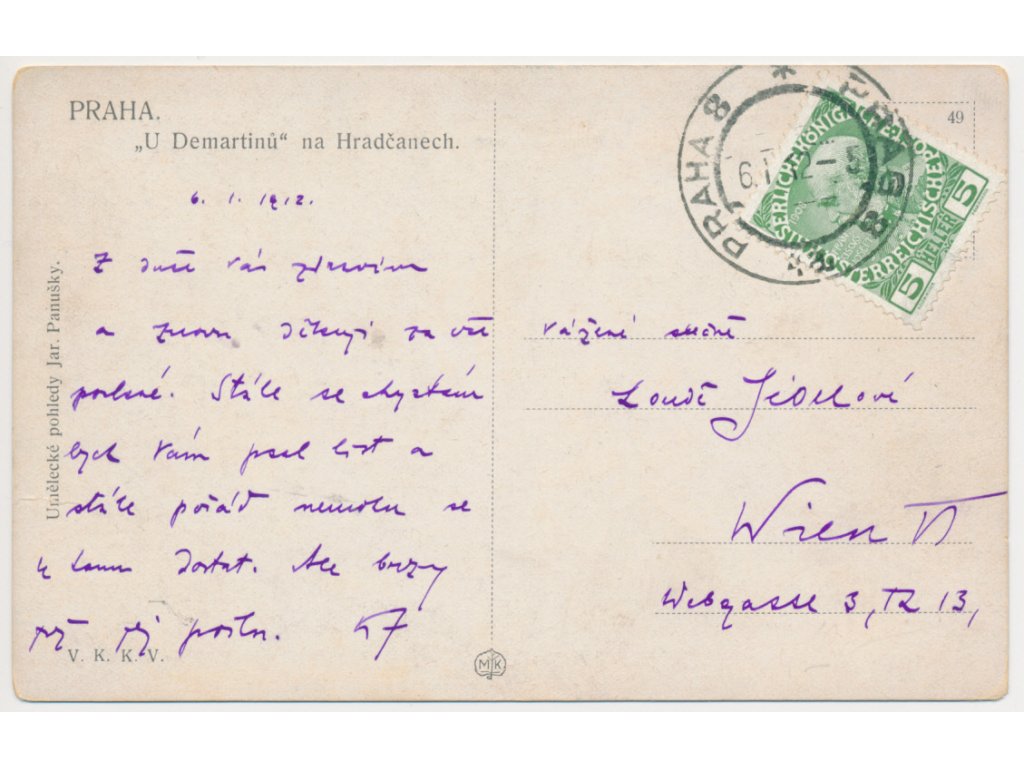 PRAHA.
„U Demartinů“ na Hradčanech.
49
PRAHA 8
6.I.12-5
KAISERLICHE KÖNIGLICHE
ÖSTERREICHISCHE
5 HELLER 5
6. 1. 1912.
Z duše vás zdravím
a znovu děkuji za vše
poslané. Stále se chystám
bych Vám psal list a
stále pořád nemohu se
k tomu dostat. Ale brzy
již jej pošlu.
Vážené slečně
Jeidlové
Wien VI
Webgasse 3, 13,
Umělecké pohledy Jar. Panušky.
V. K. K. V.
MK